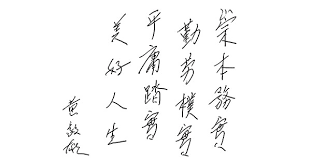 崇本務實
勤勞樸實
平庸踏實
美好人生